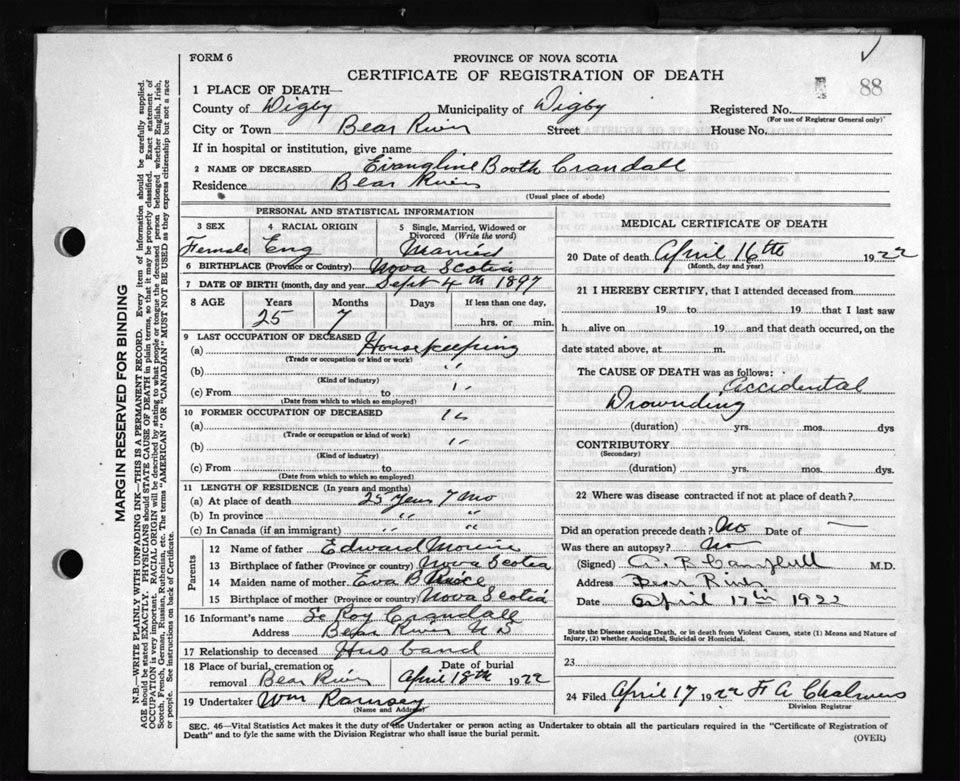 FORM 6
PROVINCE OF NOVA SCOTIA
CERTIFICATE OF REGISTRATION OF DEATH
88
1 PLACE OF DEATH—
County of Digby Municipality of Digby Registered No.
(For use of Registrar General only)
City or Town Bear River Street House No.
If in hospital or institution, give name
2 NAME OF DECEASED Evangline Booth Crandall
Residence Bear River
(Usual place of abode)
PERSONAL AND STATISTICAL INFORMATION
3 SEX 4 RACIAL ORIGIN 5 Single, Married, Widowed or Divorced (Write the word)
Female Eng Married
6 BIRTHPLACE (Province or Country) Nova Scotia
7 DATE OF BIRTH (month, day and year) Sept 4th 1897
8 AGE Years Months Days If less than one day,
25 7 hrs. or min.
9 LAST OCCUPATION OF DECEASED
(a) Housekeeping
(Trade or occupation or kind or work)
(b) "
(Kind of industry)
(c) From to "
(Date from which to which so employed)
10 FORMER OCCUPATION OF DECEASED
(a) "
(Trade or occupation or kind of work)
(b) "
(Kind of industry)
(c) From to
(Date from which to which so employed)
11 LENGTH OF RESIDENCE (In years and months)
(a) At place of death 25 Years 7 Mo
(b) In province " "
(c) In Canada (if an immigrant) " "
Parents
12 Name of father Edward
13 Birthplace of father (Province or country) Nova Scotia
14 Maiden name of mother Eva B
15 Birthplace of mother (Province or country) Nova Scotia
16 Informant's name Le Roy Crandall
Address Bear River N S
17 Relationship to deceased Husband
18 Place of burial, cremation or removal Bear River Date of burial April 18th 1922
19 Undertaker Wm Ramsey
(Name and Address)
MEDICAL CERTIFICATE OF DEATH
20 Date of death April 16th 1922
(Month, day and year)
21 I HEREBY CERTIFY, that I attended deceased from
19 to 19 that I last saw
h alive on 19 and that death occurred, on the
date stated above, at m.
The CAUSE OF DEATH was as follows:
Accidental
Drownding
(duration) yrs. mos. dys
CONTRIBUTORY
(Secondary)
(duration) yrs. mos. dys.
22 Where was disease contracted if not at place of death?
Did an operation precede death? No Date of —
Was there an autopsy? No
(Signed) B Campbell M.D.
Address Bear River
Date April 17th 1922
State the Disease causing Death, or in death from Violent Causes, state (1) Means and Nature of
Injury, (2) whether Accidental, Suicidal or Homicidal.
23
24 Filed April 17 1922 F A Chalmers
Division Registrar
SEC. 46—Vital Statistics Act makes it the duty of the Undertaker or person acting as Undertaker to obtain all the particulars required in the "Certificate of Registration of
Death" and to fyle the same with the Division Registrar who shall issue the burial permit.
(OVER)
MARGIN RESERVED FOR BINDING
N.B.—WRITE PLAINLY WITH UNFADING INK—THIS IS A PERMANENT RECORD. Every item of information should be carefully supplied.
AGE should be stated EXACTLY. PHYSICIANS should STATE CAUSE OF DEATH in plain terms, so that it may be properly classified. Exact statement of
OCCUPATION is very important. RACIAL ORIGIN will be described by stating to what people or tongue the deceased person belonged whether English, Irish,
Scotch, French, German, Russian, Ruthenian, etc. The terms "AMERICAN" OR "CANADIAN" MUST NOT BE USED as they express citizenship but not a race
or people. See instructions on back of Certificate.